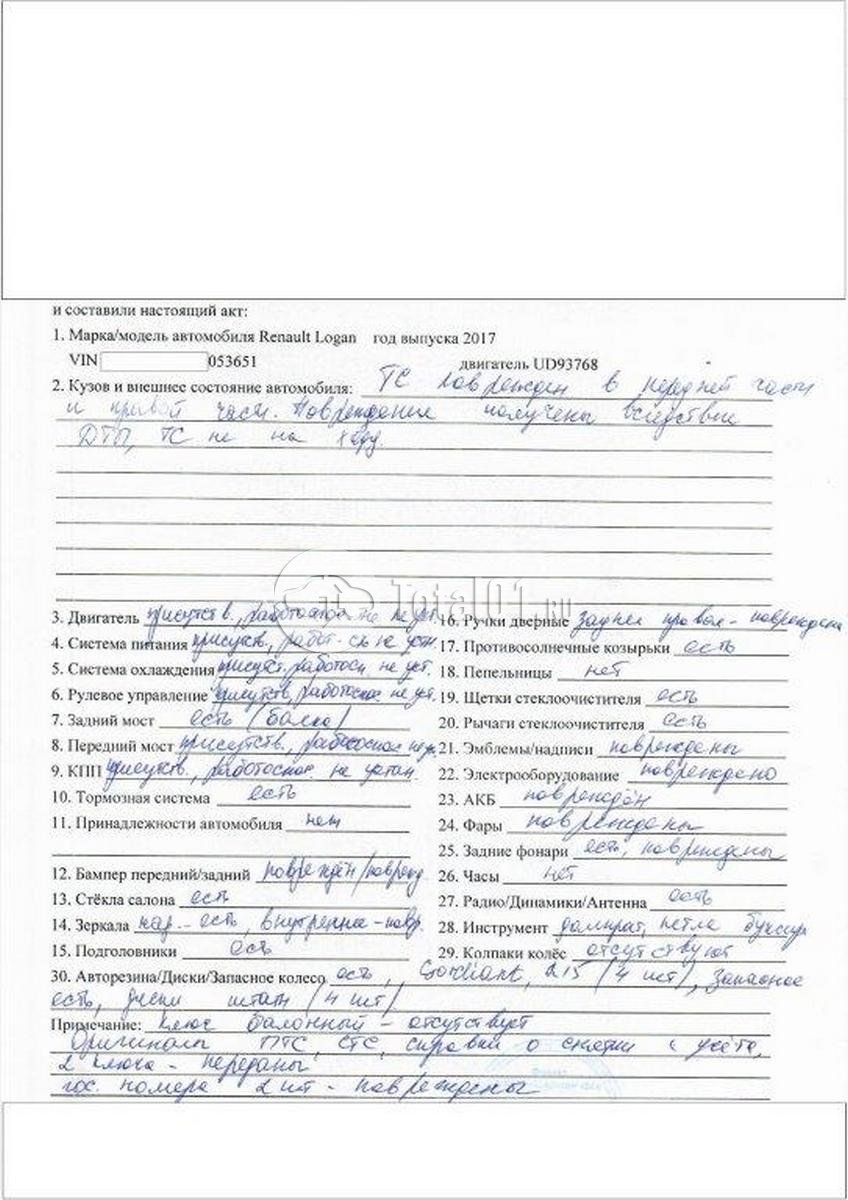 и составили настоящий акт:
1. Марка/модель автомобиля Renault Logan год выпуска 2017
VIN 053651 двигатель UD93768
2. Кузов и внешнее состояние автомобиля: ТС поврежден в передней части
и правой части. Повреждение получены вследствие
ДТП, ТС не на ходу.
Total01.RU
3. Двигатель присутств., работоспос-ть не уст.
4. Система питания присутств, работ-сть не устн.
5. Система охлаждения присутст. работосп. не уст.
6. Рулевое управление присутств, работоспос не уст.
7. Задний мост есть (балка)
8. Передний мост присутств., работоспос не ус.
9. КПП присутств., работоспос. не устан.
10. Тормозная система есть
11. Принадлежности автомобиля нет
12. Бампер передний/задний поврежден/поврежд.
13. Стёкла салона есть
14. Зеркала нар. - есть, внутреннее - повр.
15. Подголовники есть
16. Ручки дверные задняя правая - повреждена
17. Противосолнечные козырьки есть
18. Пепельницы нет
19. Щетки стеклоочистителя есть
20. Рычаги стеклоочистителя есть
21. Эмблемы/надписи повреждены
22. Электрооборудование повреждено
23. АКБ повреждён
24. Фары повреждены
25. Задние фонари есть, повреждены
26. Часы нет
27. Радио/Динамики/Антенна есть
28. Инструмент домкрат, петля буксир
29. Колпаки колёс отсутствуют
30. Авторезина/Диски/Запасное колесо есть, Cordiant, 215 (4 шт), запасное
есть, диски штатн (4 шт)
Примечание: Ключ балонный - отсутствует
Оригиналы ПТС, СТС, справки о снятии с учёта,
2 ключа - переданы
гос. номера 2 шт - повреждены